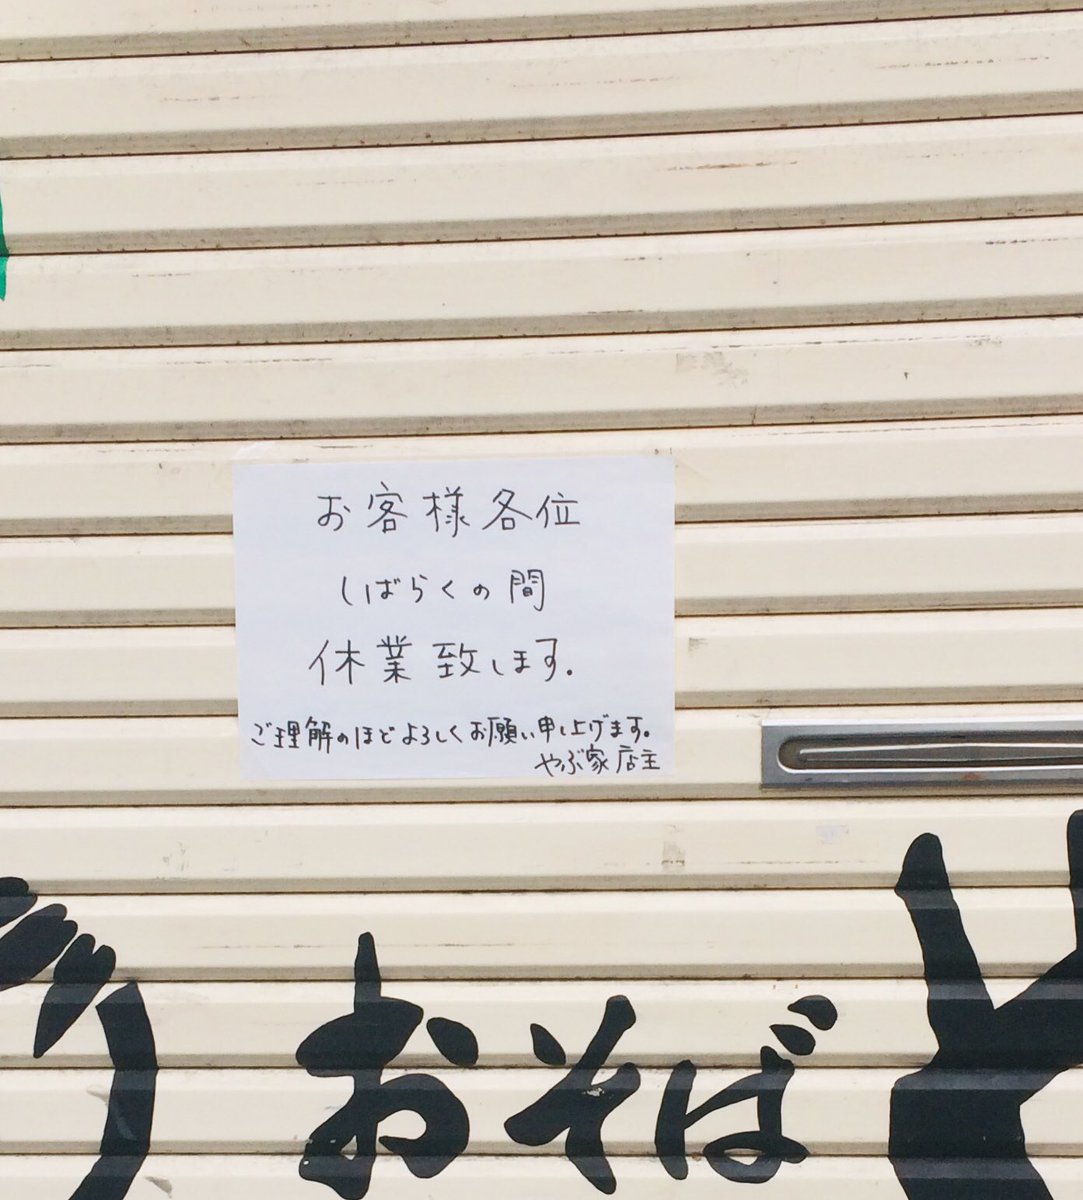 お客様各位
しばらくの間
休業致します。
ご理解のほどよろしくお願い申し上げます。
やぶ家店主
おそば